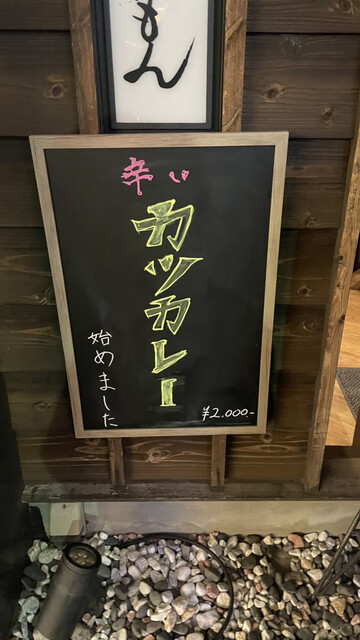 もん
辛い
カツカレー
始めました
¥2.000-